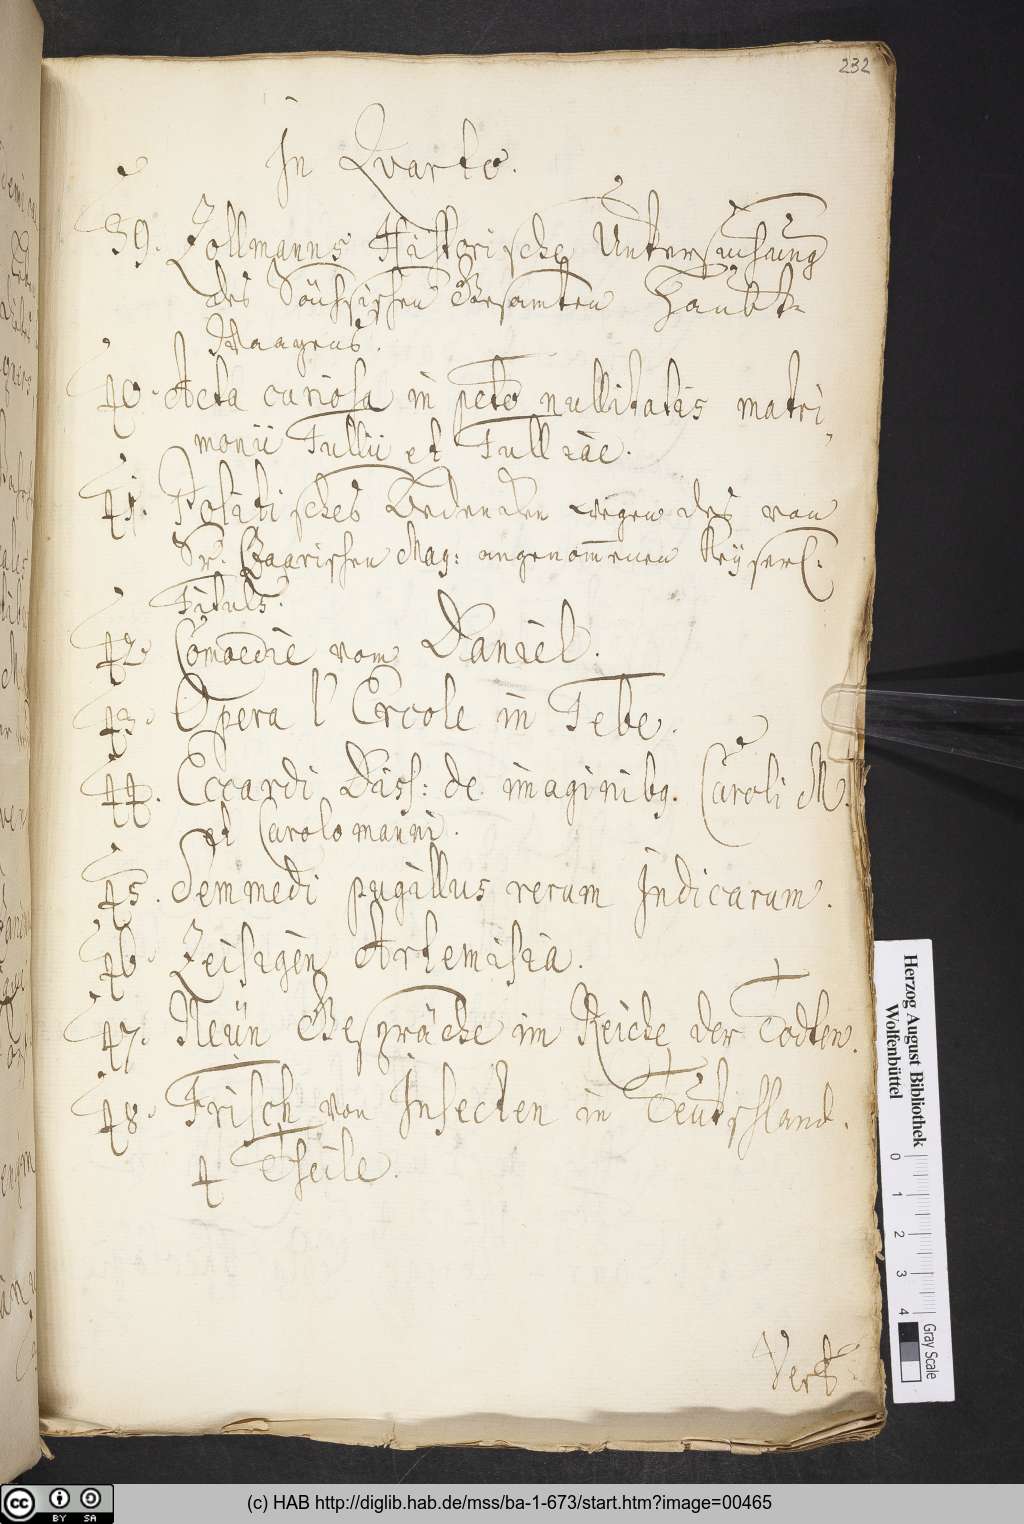 232
In Qvarto.
39. Zollmanns Historische Untersuchung
des Sächsischen Gesamten Haubt-
Waapens.
40. Acta curiosa in pcto nullitatis matri,,
monii Tullii et Tulliae.
41. Politisches Bedencken wegen des von
Sr. Czaarischen Maj: angenommenen Keyserl:
Tituls.
42. Comoedie vom Daniel.
43. Opera l'Ercole in Tebe.
44. Eccardi Diss: de imaginibq. Caroli M.
et Carolomanni.
45. Semmedi pugillus rerum Indicarum.
46. Zeisigen Artemisia.
47. Neün Gespräche im Reiche der Todten.
48. Frisch von Insecten in Teutschland.
4 Theile.
Herzog August Bibliothek
Wolfenbüttel
0 1 2 3 4
Gray Scale
cc BY SA
(c) HAB http://diglib.hab.de/mss/ba-1-673/start.htm?image=00465